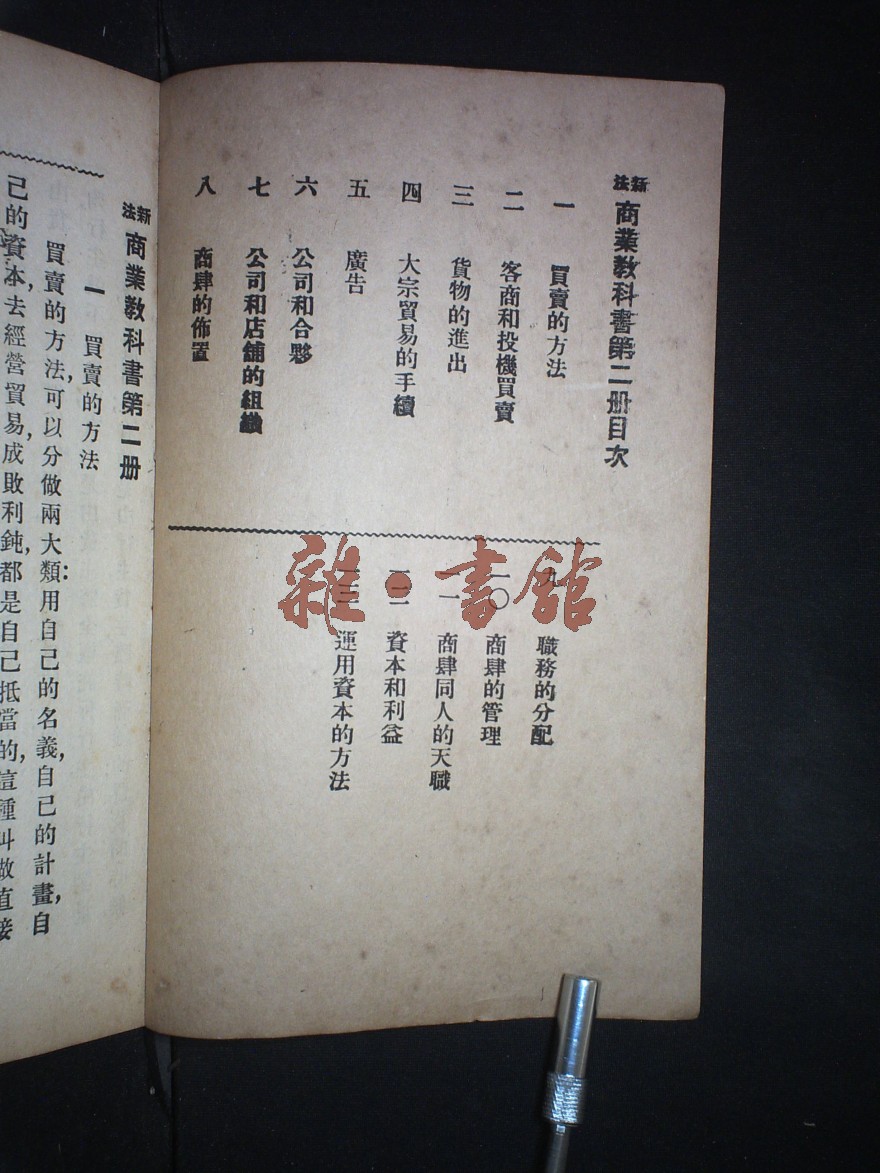 新法商業教科書第二册目次
一 買賣的方法
二 客商和投機買賣
三 貨物的進出
四 大宗貿易的手續
五 廣告
六 公司和合夥
七 公司和店舖的組織
八 商肆的佈置
九 職務的分配
一〇 商肆的管理
一一 商肆同人的天職
一二 資本和利益
一三 運用資本的方法
雜·書館
新法商業教科書第二册
一 買賣的方法
買賣的方法,可以分做兩大類:用自己的名義,自己的計畫,自
己的資本,去經營貿易,成敗利鈍,都是自己抵當的,這種叫做直接